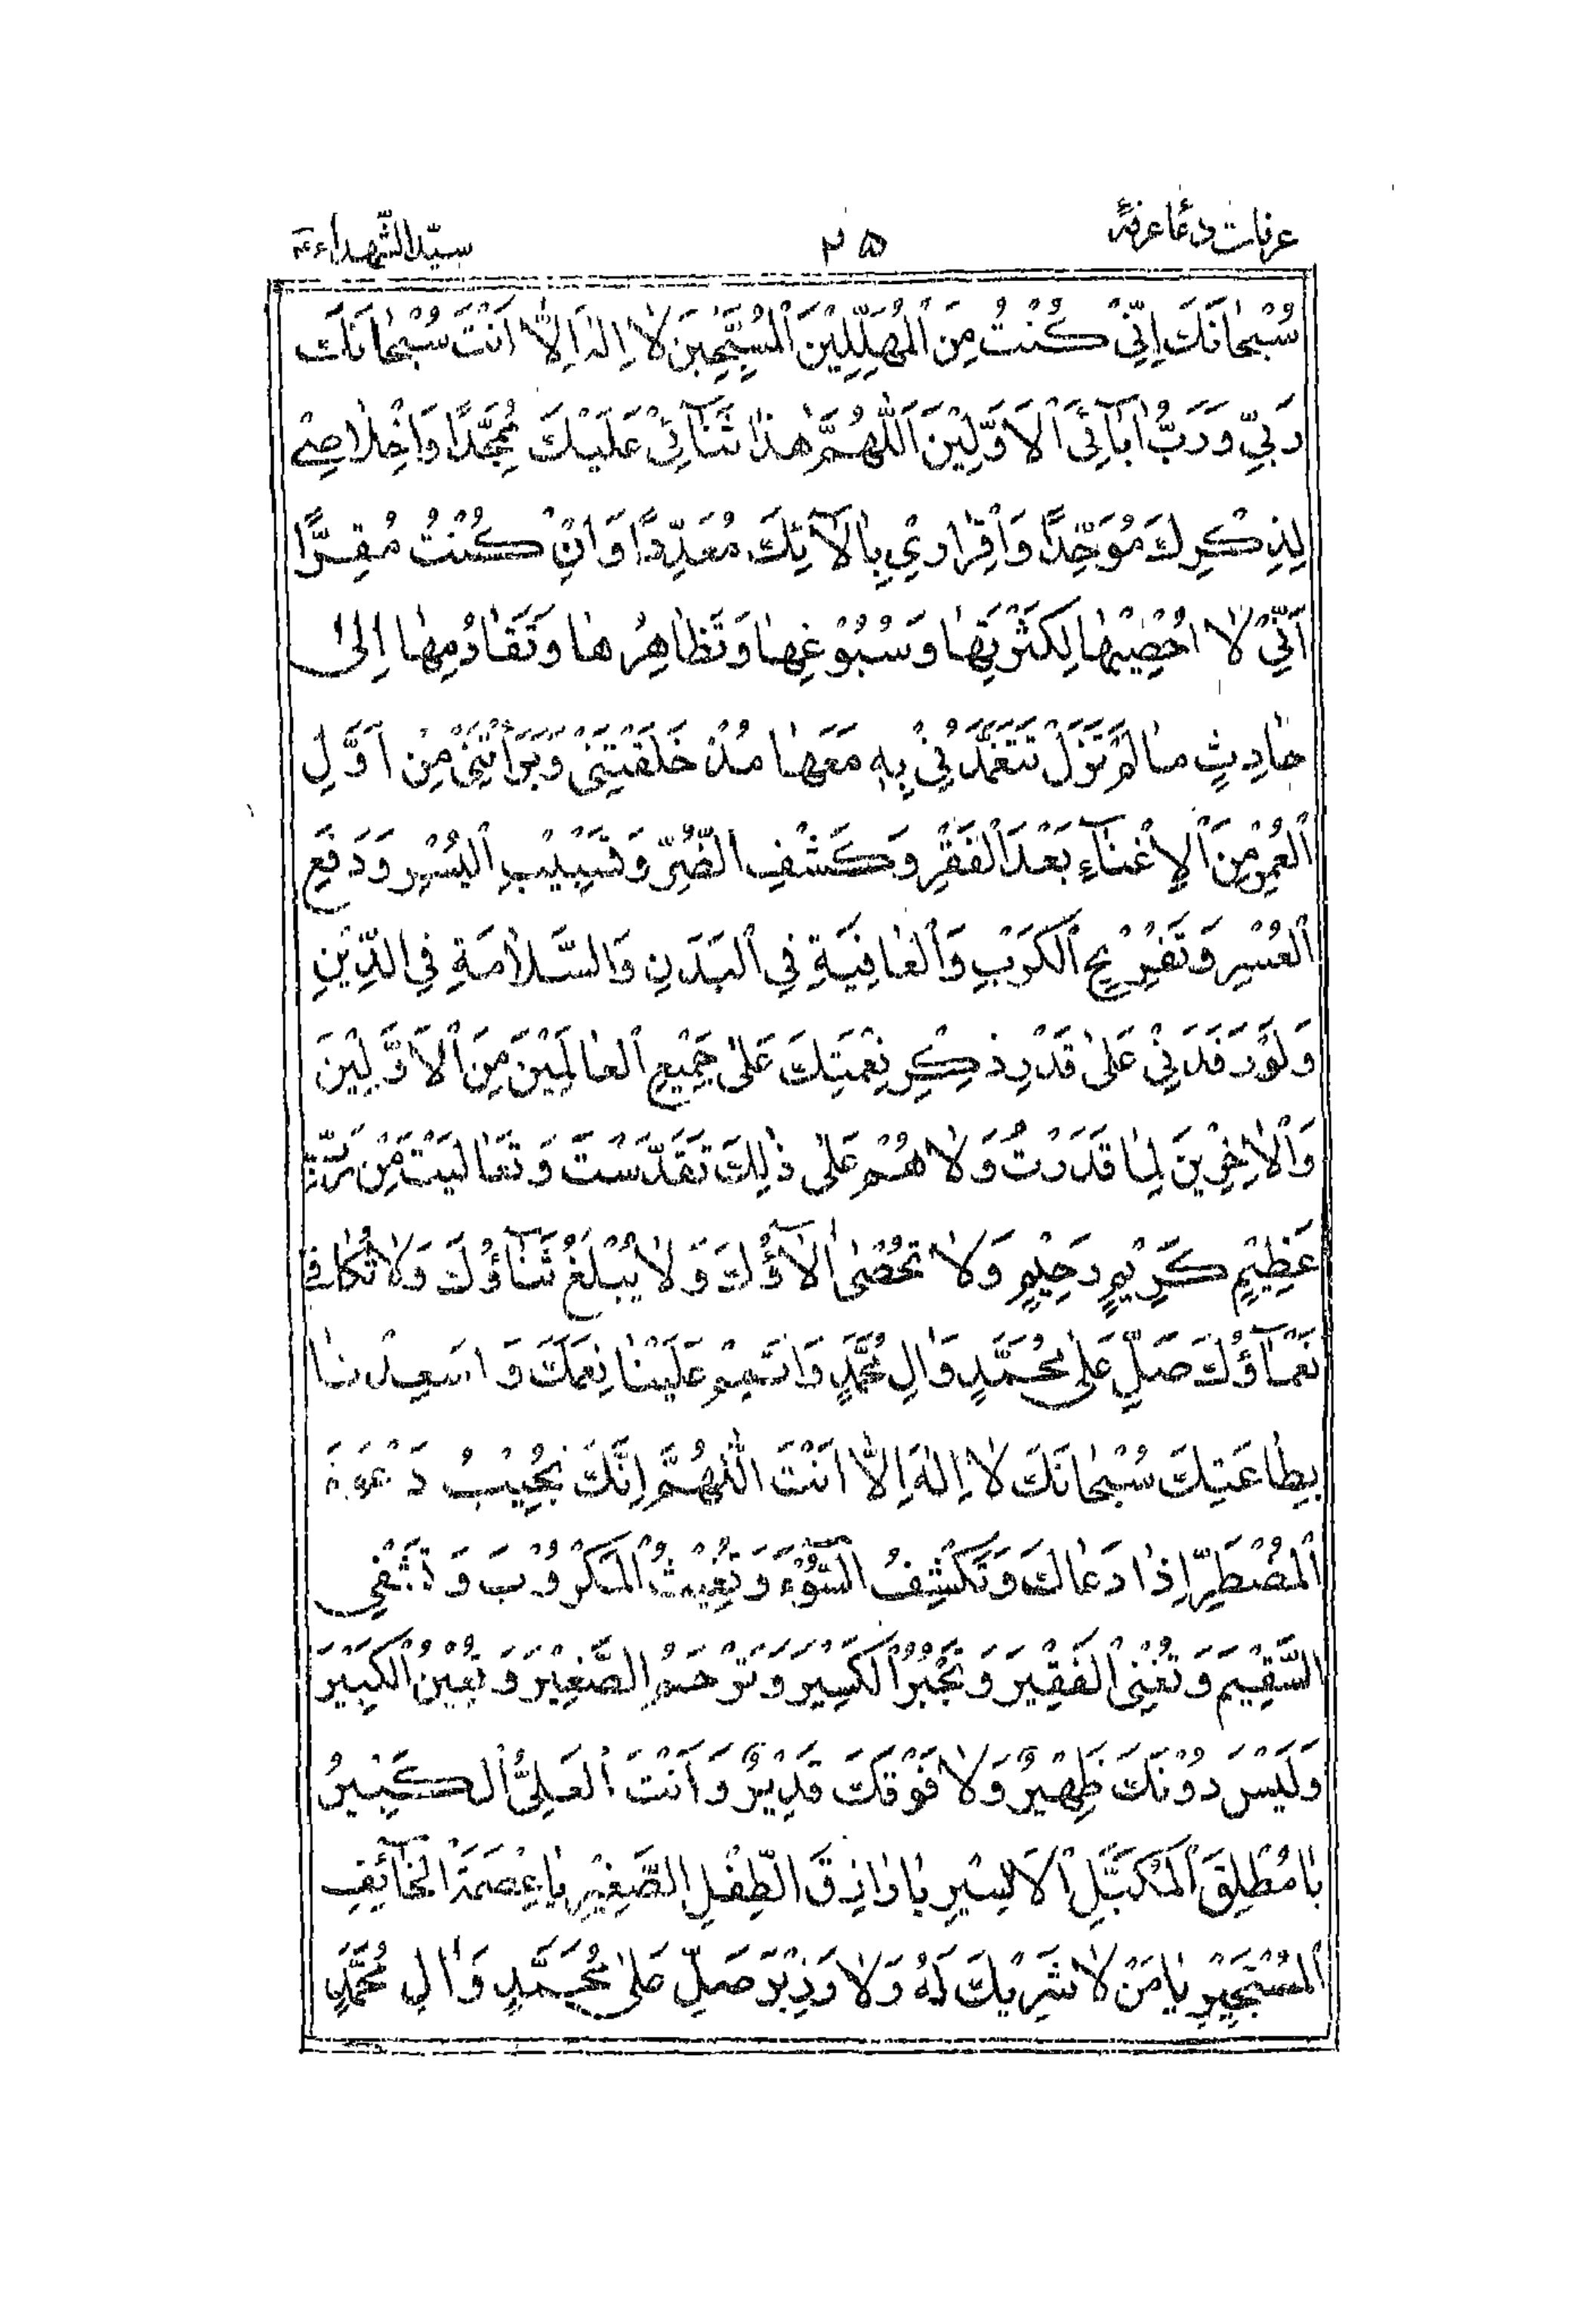 عرفات دعاعرفهٔ
۲۵
سیّدالشّهداءع
سُبْحٰانَكَ اِنّيْ كُنْتُ مِنَ الْمُهَلِّلِيْنَ الْمُسَبِّحِيْنَ لاٰ اِلٰهَ اِلاّٰ اَنْتَ سُبْحٰانَكَ
رَبّيْ وَرَبُّ اٰبٰآئِىَ الْاَوَّلِيْنَ اَللّٰهُمَّ هٰذٰا ثَنٰآئِيْ عَلَيْكَ مُمَجِّدًا وَاِخْلاٰصِيْ
لِذِكْرِكَ مُوَحِّدًا وَاِقْرٰارِيْ بِاٰلاٰۤئِكَ مُعَدِّدًا وَاِنْ كُنْتُ مُقِرًّا
اَنّيْ لاٰ اُحْصِيْهٰا لِكَثْرَتِهٰا وَسُبُوْغِهٰا وَتَظٰاهُرِهٰا وَتَقٰادُمِهٰا اِلىٰ
حٰادِثٍ مٰا لَمْ تَزَلْ تَتَغَمَّدُنِيْ بِهِ مَعَهٰا مُذْ خَلَقْتَنِيْ وَبَرَأْتَنِيْ مِنْ اَوَّلِ
الْعُمْرِ مِنَ الْاِغْنٰآءِ بَعْدَ الْفَقْرِ وَكَشْفِ الضُّرِّ وَتَسْبِيْبِ الْيُسْرِ وَدَفْعِ
الْعُسْرِ وَتَفْرِيْجِ الْكَرْبِ وَالْعٰافِيَةِ فِي الْبَدَنِ وَالسَّلاٰمَةِ فِي الدِّيْنِ
وَلَوْ رَفَدَنِيْ عَلىٰ قَدْرِ ذِكْرِ نِعْمَتِكَ عَلىٰ جَمِيْعِ الْعٰالَمِيْنَ مِنَ الْاَوَّلِيْنَ
وَالْاٰخِرِيْنَ لِمٰا قَدَرْتُ وَلاٰ هُمْ عَلىٰ ذٰلِكَ تَقَدَّسْتَ وَتَعٰالَيْتَ مِنْ رَبٍّ
عَظِيْمٍ كَرِيْمٍ رَحِيْمٍ وَلاٰ تُحْصٰى اٰلاٰۤؤُكَ وَلاٰ يُبْلَغُ ثَنٰآؤُكَ وَلاٰ تُكٰافىٰ
نَعْمٰآؤُكَ صَلِّ عَلىٰ مُحَمَّدٍ وَاٰلِ مُحَمَّدٍ وَاَتْمِمْ عَلَيْنٰا نِعَمَكَ وَاَسْعِدْنٰا
بِطٰاعَتِكَ سُبْحٰانَكَ لاٰ اِلٰهَ اِلاّٰ اَنْتَ اَللّٰهُمَّ اِنَّكَ تُجِيْبُ دَعْوَةَ
الْمُضْطَرِّ اِذٰا دَعٰاكَ وَتَكْشِفُ السُّوْۤءَ وَتُغِيْثُ الْمَكْرُوْبَ وَتَشْفِي
السَّقِيْمَ وَتُغْنِى الْفَقِيْرَ وَتَجْبُرُ الْكَسِيْرَ وَتَرْحَمُ الصَّغِيْرَ وَتُعِيْنُ الْكَبِيْرَ
وَلَيْسَ دُوْنَكَ ظَهِيْرٌ وَلاٰ فَوْقَكَ قَدِيْرٌ وَاَنْتَ الْعَلِىُّ الْكَبِيْرُ
يٰا مُطْلِقَ الْمُكَبَّلِ الْاَسِيْرِ يٰا رٰازِقَ الطِّفْلِ الصَّغِيْرِ يٰا عِصْمَةَ الْخٰآئِفِ
الْمُسْتَجِيْرِ يٰا مَنْ لاٰ شَرِيْكَ لَهُ وَلاٰ وَزِيْرَ صَلِّ عَلىٰ مُحَمَّدٍ وَاٰلِ مُحَمَّدٍ